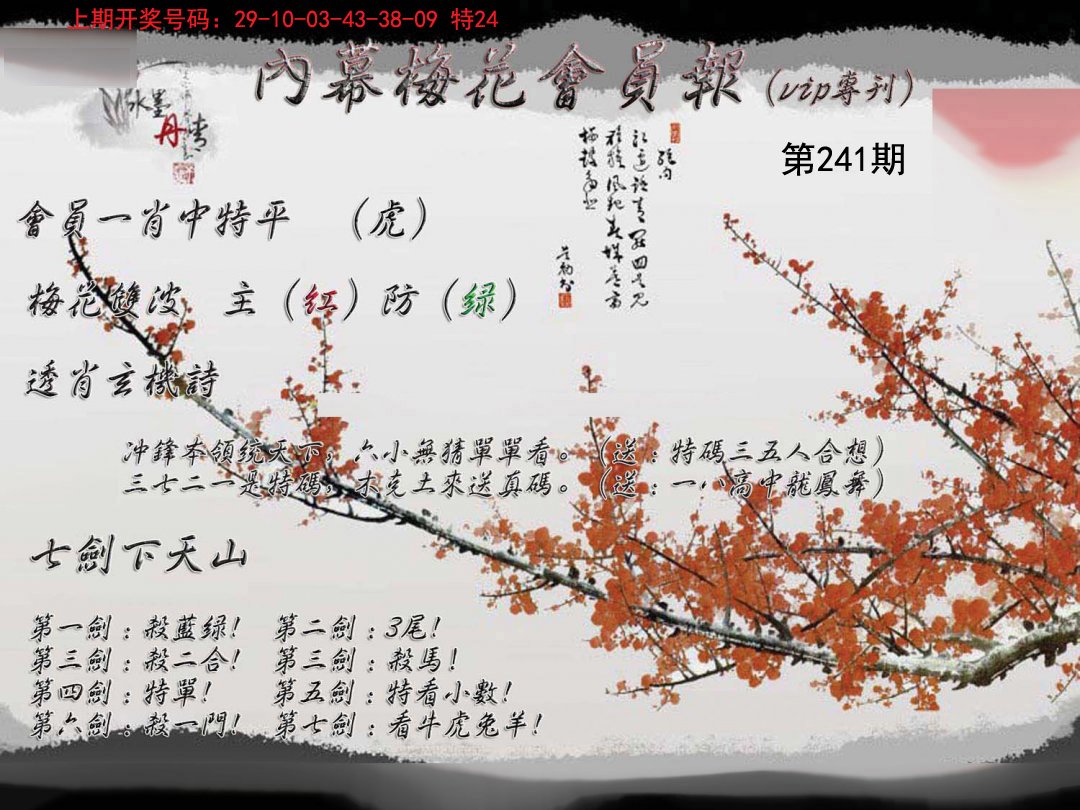 上期开奖号码：29-10-03-43-38-09 特24
內幕梅花會員報（vip專刊）
水墨
丹青
第241期
會員一肖中特平 （虎）
梅花雙波 主（红）防（绿）
透肖玄機詩
冲鋒本領统天下，六小無猜單單看。（送：特碼三五人合想）
三七二一是特碼，木克土來送真碼。（送：一八高中龍鳳舞）
七劍下天山
第一劍：殺藍绿！ 第二劍：3尾！
第三劍：殺二合！ 第三劍：殺馬！
第四劍：特單！ 第五劍：特看小數！
第六劍：殺一門！ 第七劍：看牛虎兔羊！